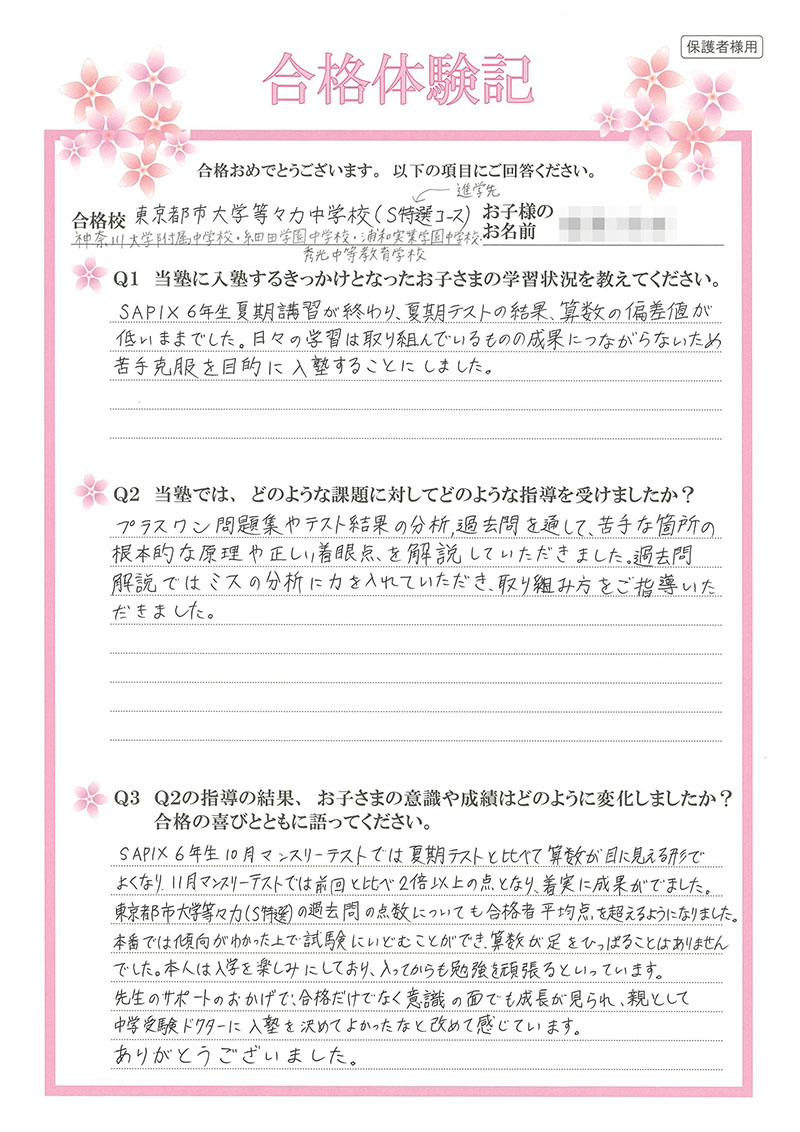 保護者様用
合格体験記
合格おめでとうございます。以下の項目にご回答ください。
進学先
合格校 東京都市大学等々力中学校(S特選コース) お子様のお名前
神奈川大学附属中学校・細田学園中学校・浦和実業学園中学校・
秀光中等教育学校
Q1 当塾に入塾するきっかけとなったお子さまの学習状況を教えてください。
SAPIX6年生夏期講習が終わり、夏期テストの結果、算数の偏差値が
低いままでした。日々の学習は取り組んでいるものの成果につながらないため
苦手克服を目的に入塾することにしました。
Q2 当塾では、どのような課題に対してどのような指導を受けましたか?
プラスワン問題集やテスト結果の分析,過去問を通して、苦手な箇所の
根本的な原理や正しい着眼点、を解説していただきました。過去問
解説ではミスの分析に力を入れていただき、取り組み方をご指導いた
だきました。
Q3 Q2の指導の結果、お子さまの意識や成績はどのように変化しましたか?
合格の喜びとともに語ってください。
SAPIX6年生10月マンスリーテストでは夏期テストと比べて算数が目に見える形で
よくなり、11月マンスリーテストでは前回と比べ2倍以上の点となり、着実に成果がでました。
東京都市大学等々力(S特選)の過去問の点数についても合格者平均点を超えるようになりました。
本番では傾向がわかった上で試験にいどむことができ、算数が足をひっぱることはありません
でした。本人は入学を楽しみにしており、入ってからも勉強を頑張るといっています。
先生のサポートのおかげで、合格だけでなく意識の面でも成長が見られ、親として
中学受験ドクターに入塾を決めてよかったなと改めて感じています。
ありがとうございました。